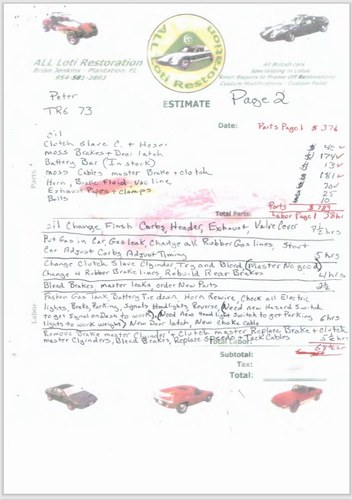 ALL Loti Restoration
Brian Jenkins - Plantation, FL
954-581-2863
ALL Loti Restoration
All British cars
Specializing in Lotus
Small Repairs to Frame Off Restorations
Custom Modifications - Custom Paint
Peter
TR6 73
ESTIMATE
Page 2
Date:
Parts Page 1 $ 376
Parts
oil
Clutch Slave C. + Hoses
moss Brakes + Door latch
Battery Bar (In stock)
moss Cables master Brake + clutch
Horn, Brake Fluid, Vac line
Exhaust Pipes + Clamps
Bolts
$ 40
174
13
181
70
25
10
Parts
Total Parts:
Labor Page 1 38hr
Labor
oil Change, Finsh Carbs, Header, Exhaust, Valve Cover 7½ hrs
Put Gas in Car, Gas leak, Change all Rubber Gas lines, Start
Car Adjust Carbs Adjust Timing 5 hrs
Change Clutch Slave Clyinder Try and Bleed (Master No good)
Change 4 Rubber Brake lines, Rebuild Rear Brakes 6 hrs
Bleed Brakes master leaks, order New Parts 2½
Fasten Gas Tank, Battery Tie down, Horn Sewire, Check all Electric
lights, Brake, Parking, Signals Headlights, Reverse (Need new Hazard Switch
to get Signal on Dash to work), Need New Head light Switch to get Parking 6 hrs
lights to work wright) New Door latch, New choke Cable
Remove Brake master Clyinder + Clutch master Replace Brake + Clutch
master Clyinders, Bleed Brakes, Replace Speedo + Tack Cables 5½ hr
Total Labor:
Subtotal:
Tax:
Total: